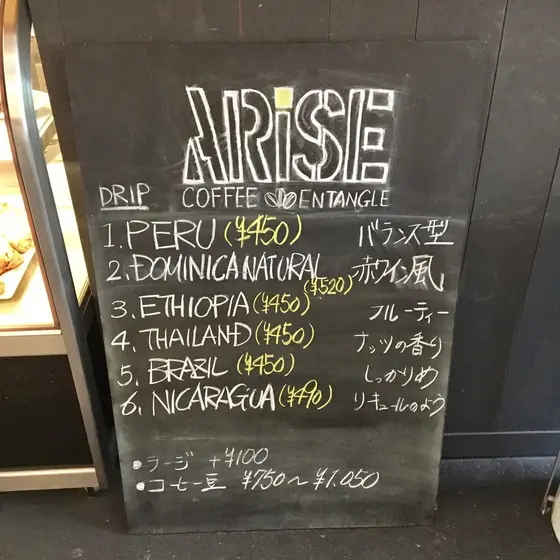 ARiSE
COFFEE ENTANGLE
DRIP
1. PERU (¥450) バランス型
2. DOMINICA NATURAL (¥520) 赤ワイン風
3. ETHIOPIA (¥450) フルーティー
4. THAILAND (¥450) ナッツの香り
5. BRAZIL (¥450) しっかりめ
6. NICARAGUA (¥490) リキュールのよう
・ラージ +¥100
・コーヒー豆 ¥750〜¥1.050